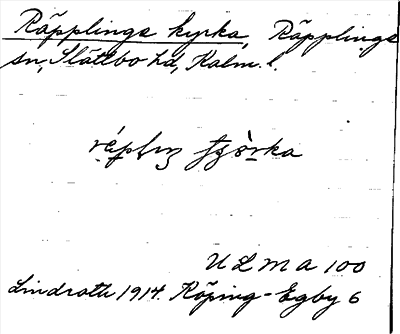 Räpplings kyrka, Räpplings
sn, Slättbo hd, Kalm. l.
U L M A 100
Lindroth 1914. Köping-Egby 6